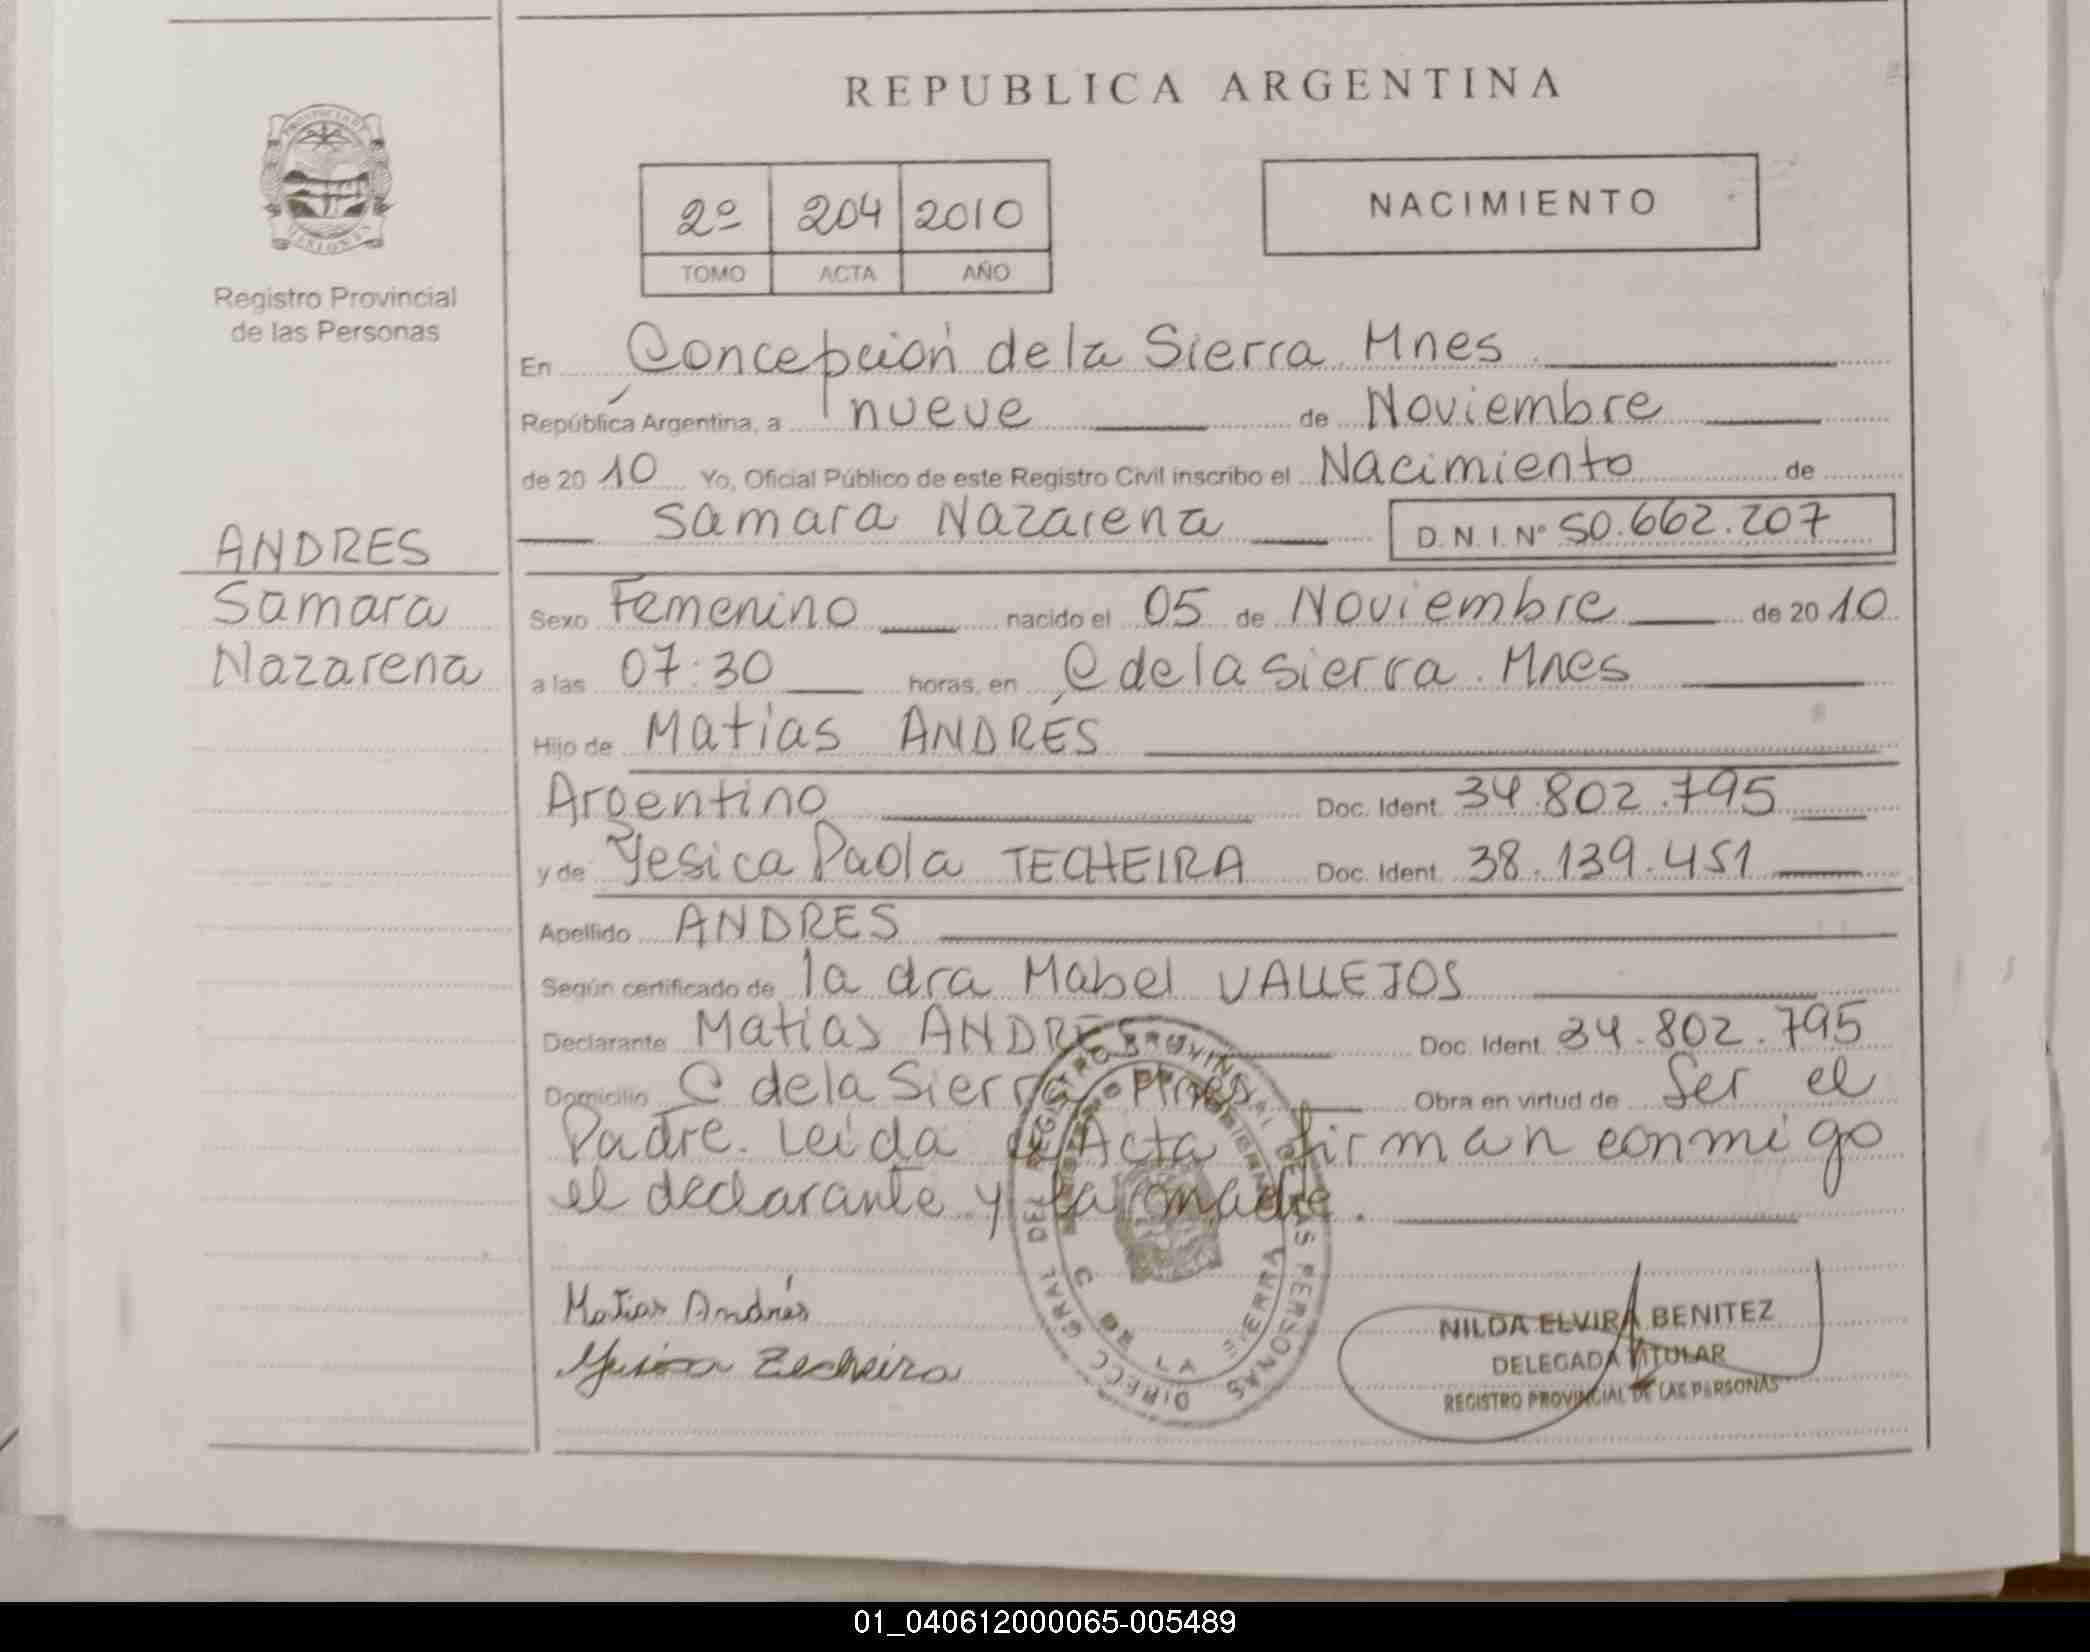 REPUBLICA ARGENTINA
PROVINCIA DE
MISIONES
Registro Provincial
de las Personas
2º 204 2010
TOMO ACTA AÑO
NACIMIENTO
En Concepción de la Sierra Mnes
República Argentina, a nueve de Noviembre
de 2010 Yo, Oficial Público de este Registro Civil inscribo el Nacimiento de
Samara Nazarena D.N.I. Nº 50.662.207
ANDRES
Samara
Nazarena
Sexo Femenino nacido el 05 de Noviembre de 2010
a las 07:30 horas, en C de la Sierra. Mnes
Hijo de Matías ANDRÉS
Argentino Doc. Ident. 34.802.795
y de Yesica Paola TECHEIRA Doc. Ident. 38.139.451
Apellido ANDRES
Según certificado de la dra Mabel VALLEJOS
Declarante Matías ANDRES Doc. Ident. 34.802.795
Domicilio C de la Sierra Mnes Obra en virtud de Ser el
Padre. Leída el Acta firman conmigo
el declarante y la madre.
DIREC GRAL DEL REGISTRO PROVINCIAL DE LAS PERSONAS
C DE LA SIERRA
Matias Andrés
Yesica Techeira
NILDA ELVIRA BENITEZ
DELEGADA TITULAR
REGISTRO PROVINCIAL DE LAS PERSONAS
01_040612000065-005489